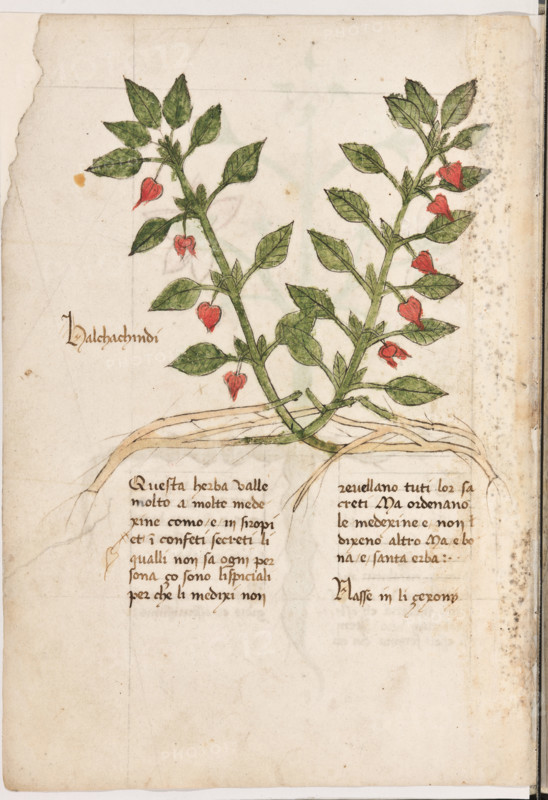 Halchachindi
Questa herba valle
molto a molte mede
xine como e in siropi
et ī confeti secreti li
qualli non sa ogni per
sona ço sono li spiciali
per che li medixi non
revellano tuti lor se
creti Ma ordenano
le medexine e non
dixeno altro Ma e bo
na e santa erba :·
Nasse in li